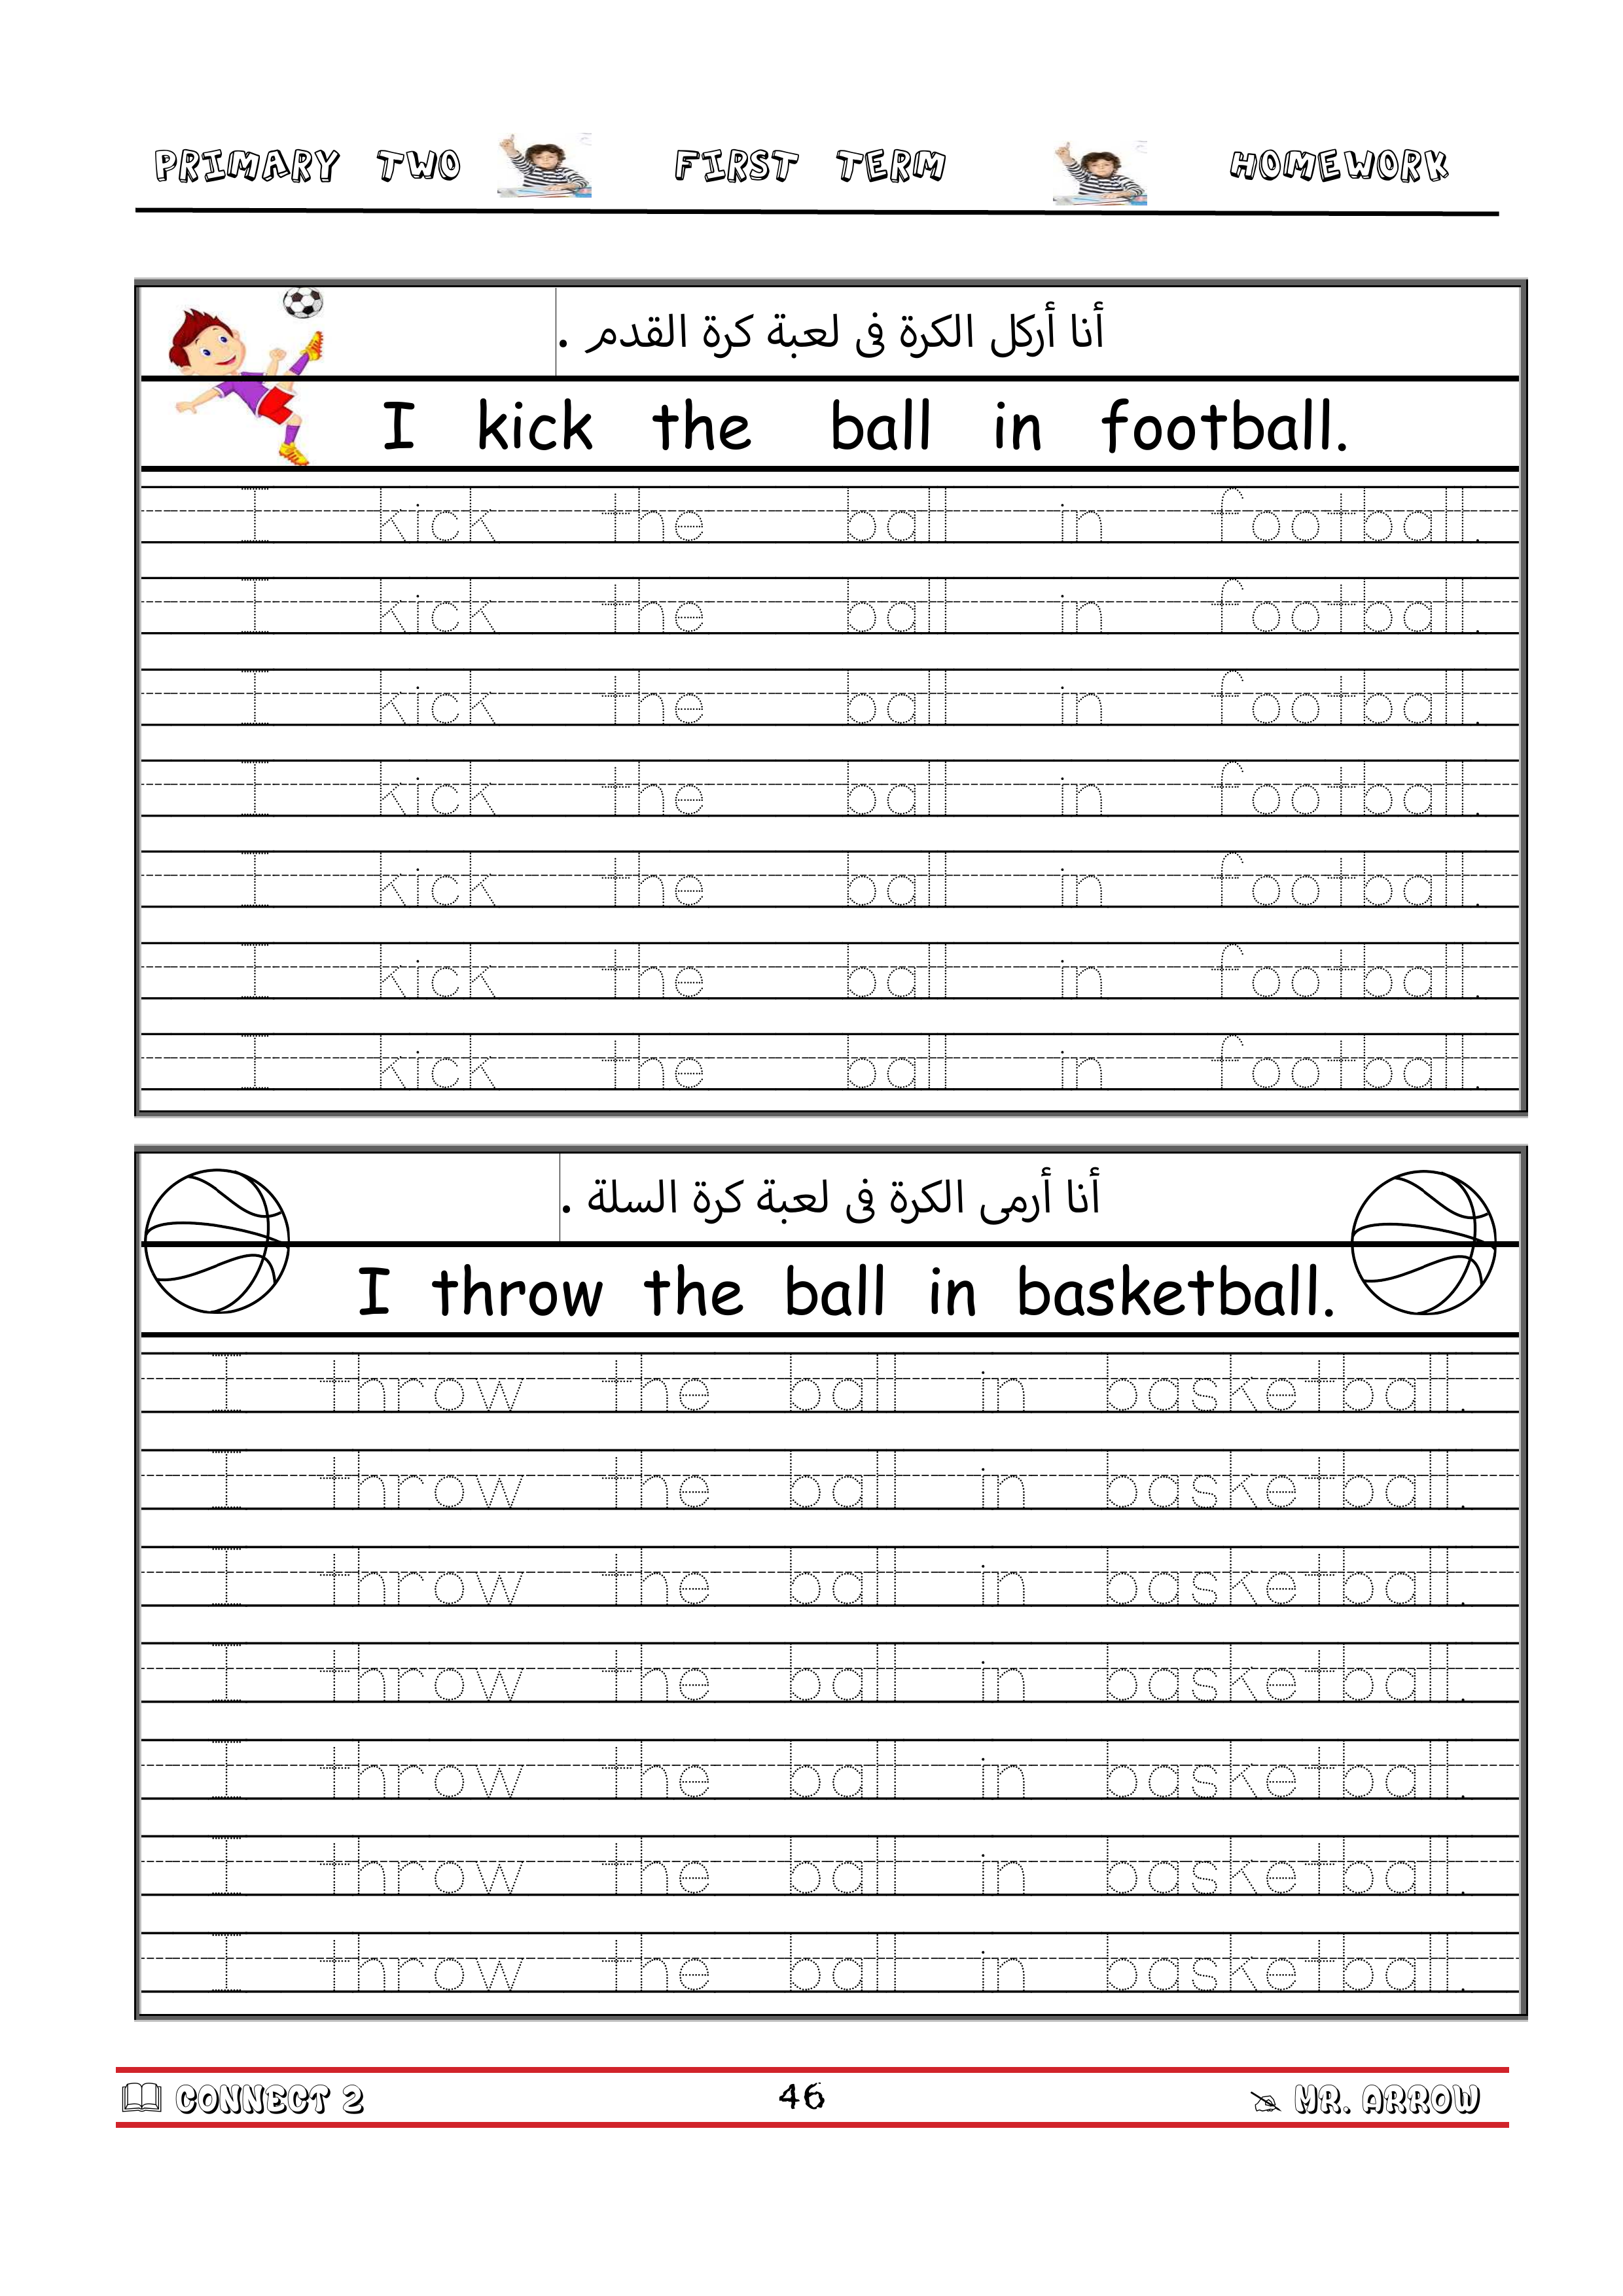 PRIMARY TWO FIRST TERM HOMEWORK
أنا أركل الكرة فى لعبة كرة القدم .
I kick the ball in football.
I kick the ball in football.
I kick the ball in football.
I kick the ball in football.
I kick the ball in football.
I kick the ball in football.
I kick the ball in football.
I kick the ball in football.
أنا أرمى الكرة فى لعبة كرة السلة .
I throw the ball in basketball.
I throw the ball in basketball.
I throw the ball in basketball.
I throw the ball in basketball.
I throw the ball in basketball.
I throw the ball in basketball.
I throw the ball in basketball.
I throw the ball in basketball.
CONNECT 2 46 MR. ARROW